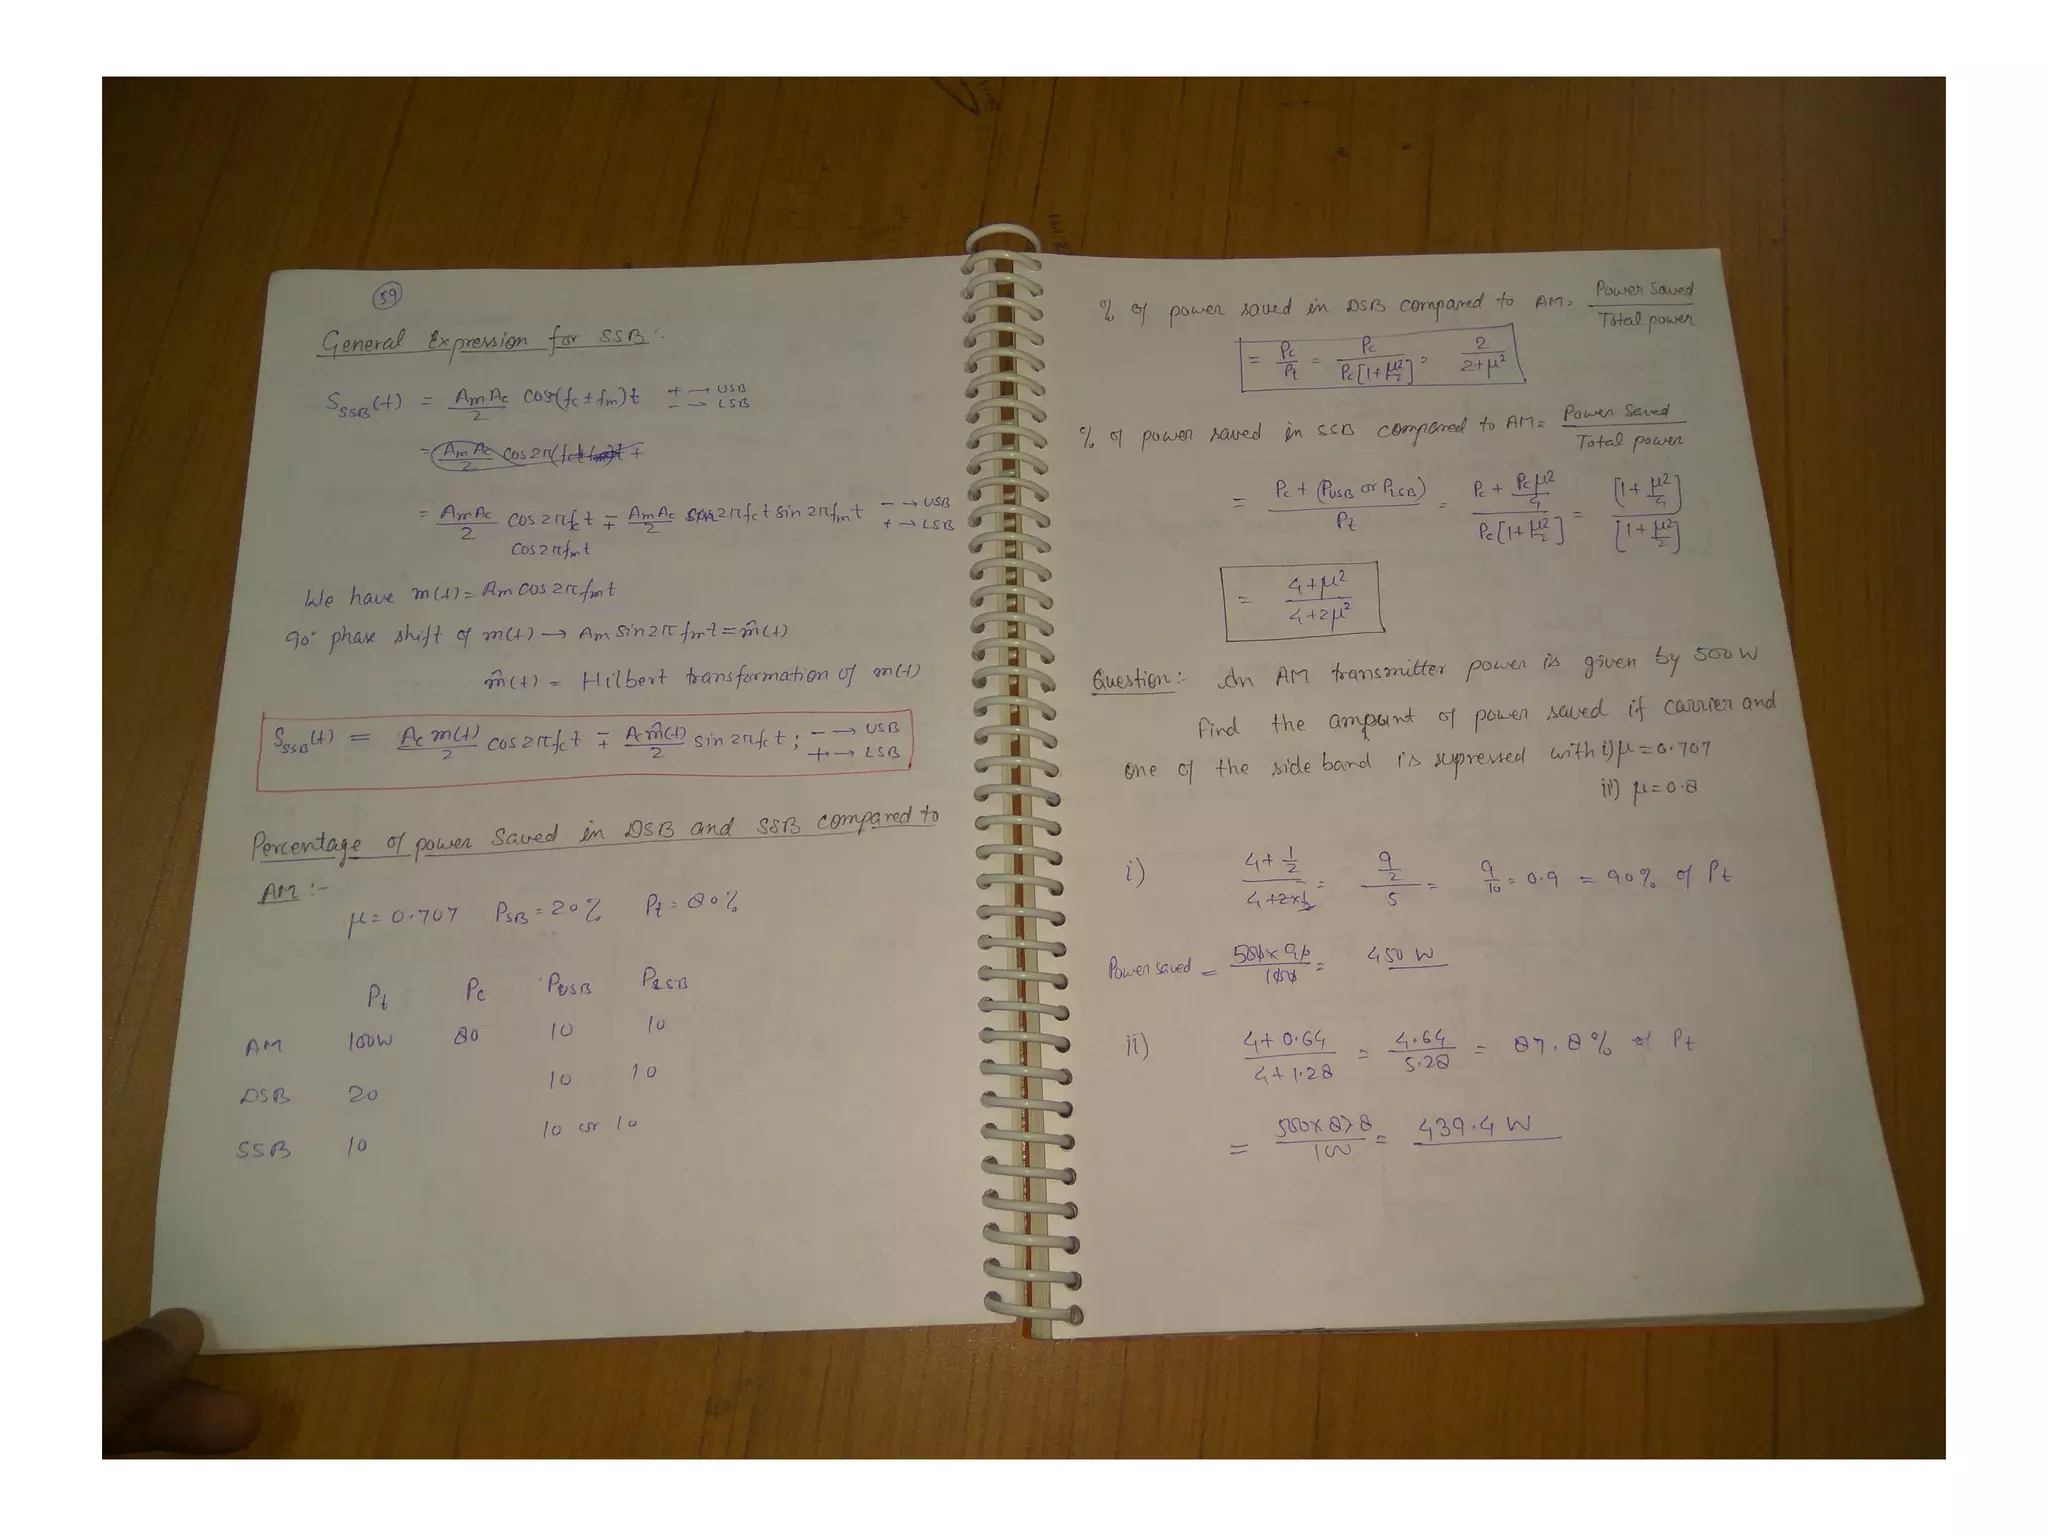 59
General Expression for SSB:-
S_SSB(t) = AmAc/2 cos(fc ± fm)t + → USB - → LSB
= AmAc/2 cos2π(
= AmAc/2 cos2πfct ∓ AmAc/2 2πfct sin2πfmt - → USB + → LSB
cos2πfmt
We have m(t) = Am cos2πfmt
90° phase shift of m(t) → Am sin2πfmt = m̂(t)
m̂(t) = Hilbert transformation of m(t)
S_SSB(t) = Ac m(t)/2 cos2πfct ∓ Ac m̂(t)/2 sin2πfct ; - → USB + → LSB
Percentage of power saved in DSB and SSB compared to
AM :-
μ = 0.707 P_SB = 20% Pt = 80%
Pt Pc P_USB P_LSB
AM 100W 80 10 10
DSB 20 10 10
SSB 10 10 or 10
% of power saved in DSB compared to AM = Power Saved/Total power
= Pc/Pt = Pc/Pc[1+μ²/2] = 2/2+μ²
% of power saved in SSB compared to AM = Power Saved/Total power
= Pc + (P_USB or P_LSB)/Pt = Pc + Pcμ²/4/Pc[1+μ²/2] = [1+μ²/4]/[1+μ²/2]
= 4+μ²/4+2μ²
Question:- An AM transmitter power is given by 500W
Find the amount of power saved if carrier and
one of the side band is supressed with i) μ = 0.707
ii) μ = 0.8
i) 4+1/2/4+2×1/2 = 9/2/5 = 9/10 = 0.9 = 90% of Pt
Power saved = 500×90/100 = 450 W
ii) 4+0.64/4+1.28 = 4.64/5.28 = 87.8% of Pt
= 500×878/100 = 439.4 W